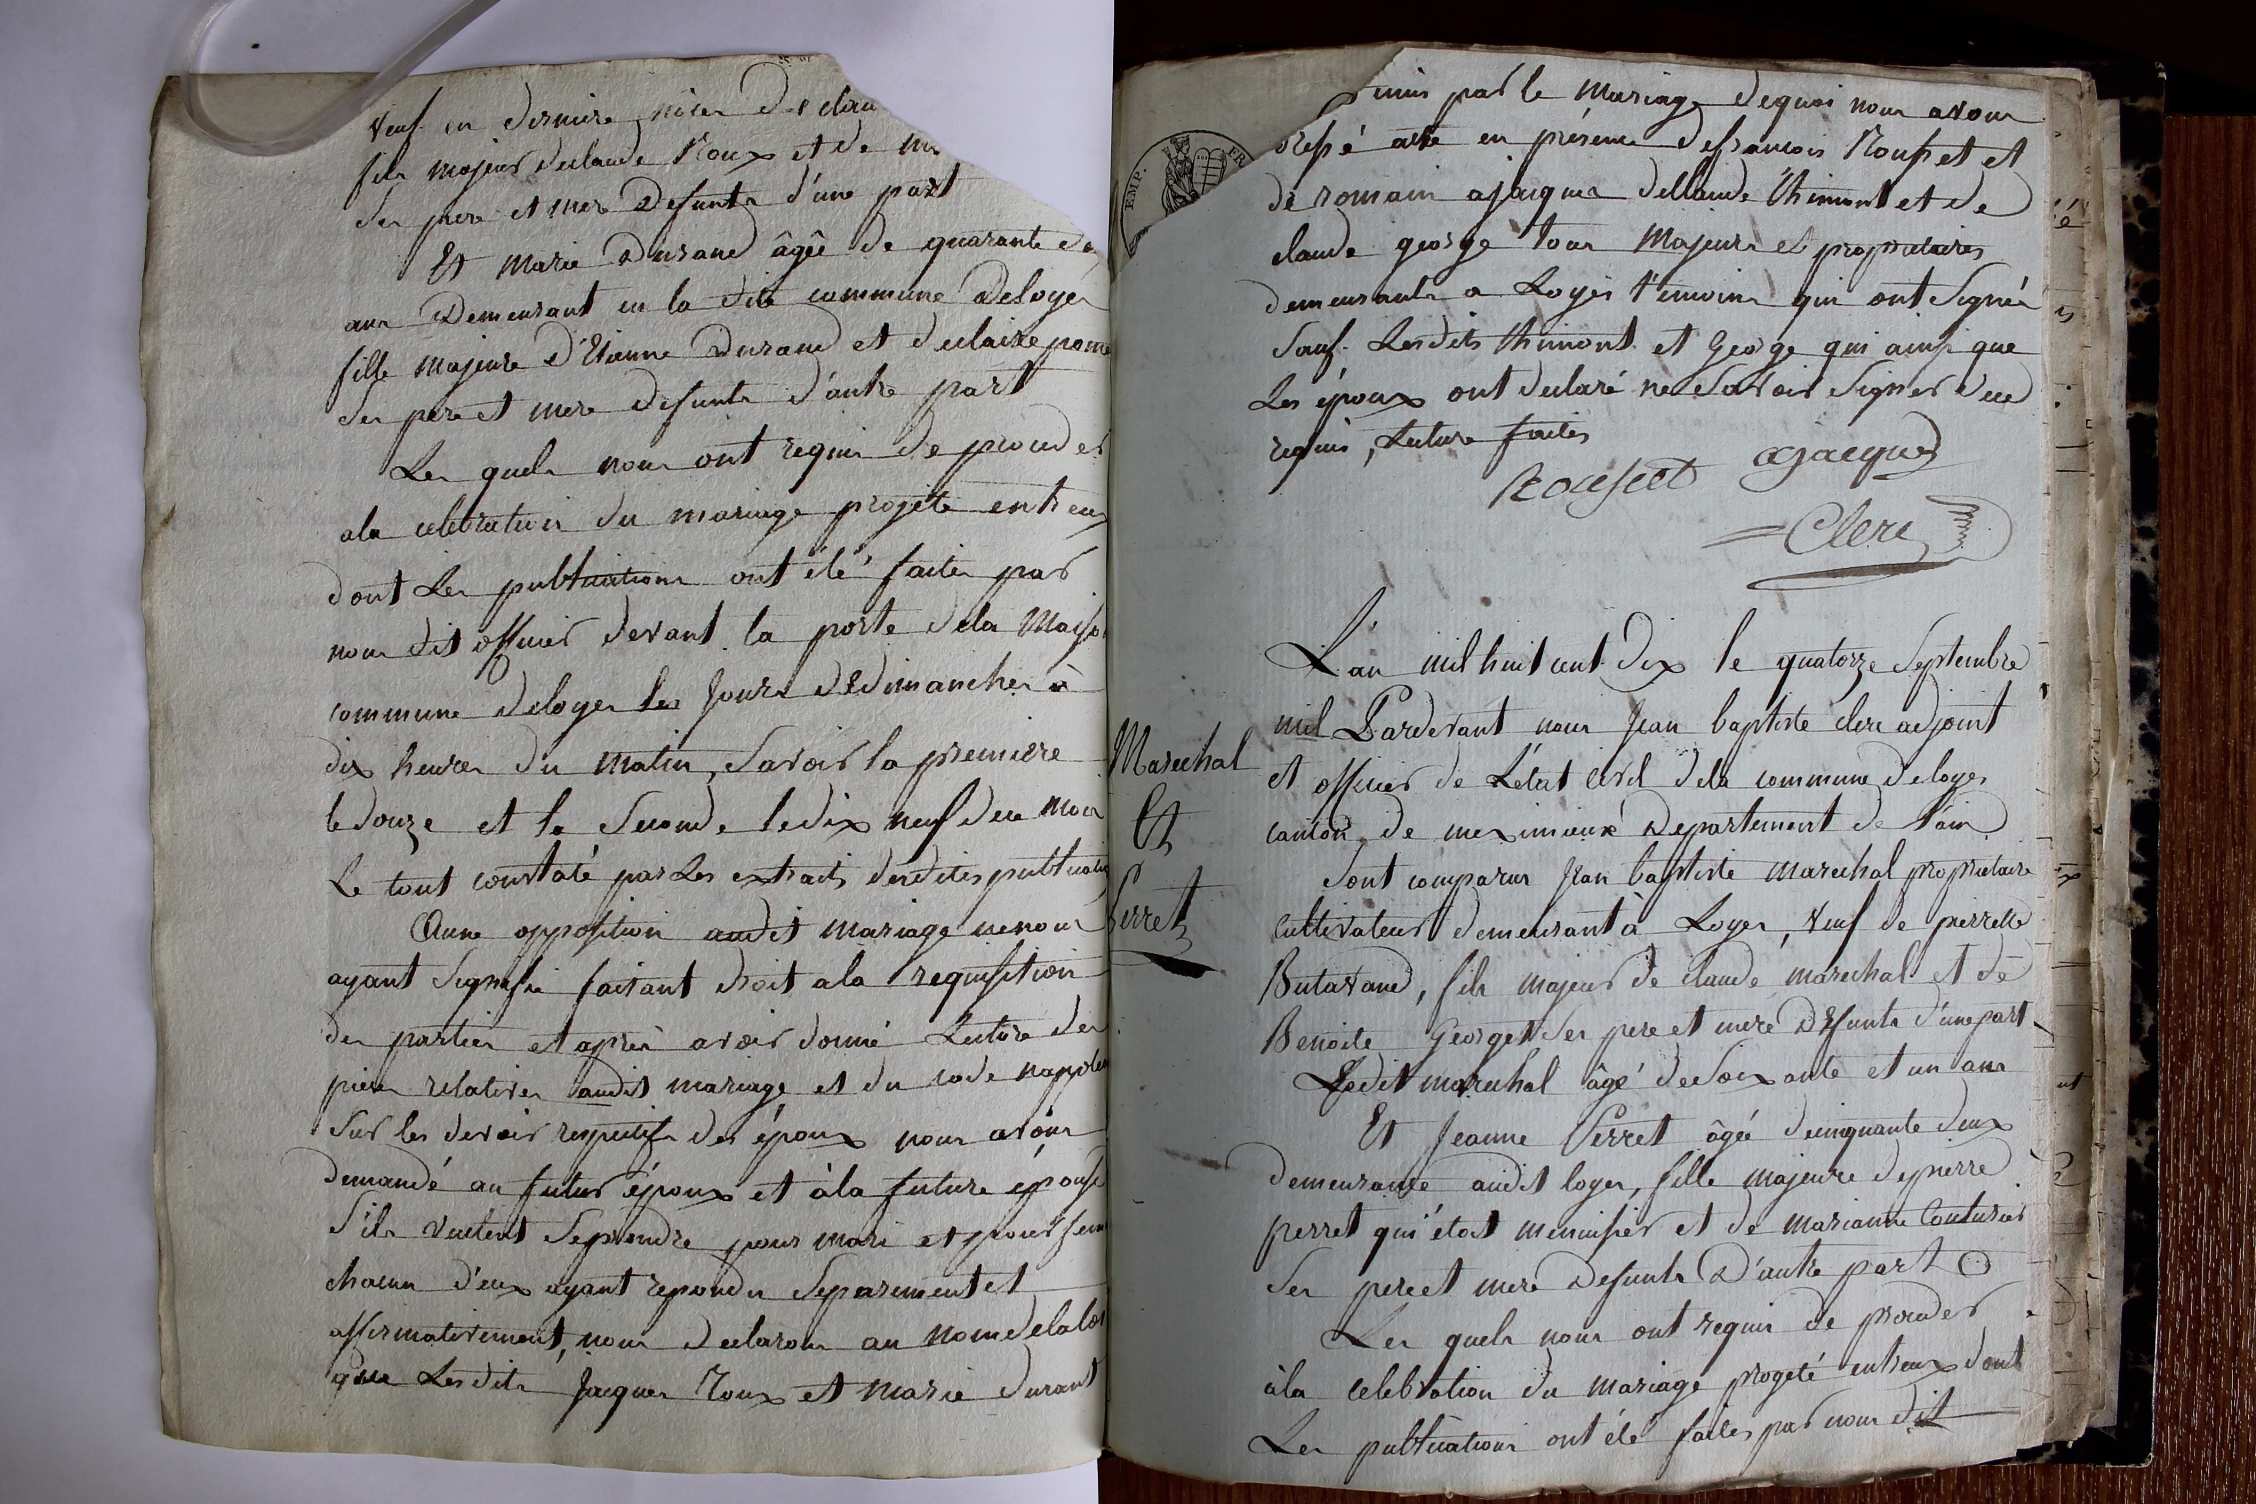 veuf en derniere noces de clau
fils majeur declaude Roux et de
ses pere et mere defunts d'une part
Et marie Durand âgée de quarante
ans Demeurant en la dite commune Deloyes
fille majeure d'Etienne Durand et declaire
ses pere et mere defunts d'autre part
Les quels nous ont requis de proceder
ala celebration du mariage projeté entreux
dont Les publications ont été faites par
nous dit officier devant la porte dela Maiso
commune deloyes les jours de dimanches à
dix heures du matin, Savoir la premiere
le douze et la Seconde ledix neuf dece mois
Le tout constaté par Les extraits desdites publications
Aucune opposition audit mariage nenous
ayant Signifié faisant droit ala requisition
des parties et après avoir donné Lecture des
pieces relatives audit mariage et du code nappoleon
Sur les devoirs respectifs des époux nous avons
demandé au futur époux et àla future épouse
S'ils veulent Seprendre pour mari et pour femme
chacun d'eux ayant repondu Separement et
affirmativement, nous declarons au nom delaloi
que Lesdits Jacques Roux et marie durant
EMP. FR
unis par le Mariage dequoi nous avons
acte en présence defrancois Rousset et
de romain ajacques declaude thimont et de
claude george tous Majeurs et proprietaires
demeurants a Loyes témoins qui ont Signés
Sauf Lesdits thimont et George qui ainsi que
Les époux ont declaré ne Savoir Signer dece
requis, Lecture faites
Rousset ajacques
Clerc
L'an mil huit cent dix le quatorze Septembre
mil Pardevant nous Jean baptiste clerc adjoint
et officier de L'état Civil dela commune deloyes
canton de meximieux Departement de l'ain
Sont comparus Jean baptiste marechal propriétaire
Cultivateur demeurant à Loyes, veuf de pierrette
Butavand, fils majeur de claude marechal et de
Benoite Georget Ses pere et mere Défunts d'une part
Ledit marechal âgé deSoixante et un ans
Et Jeanne Perret âgée decinquante deux
demeurante audit loyes, fille majeure depierre
perret qui étoit menuisier et de marianne Couturier
Ses pere et mere Defunts D'autre part
Les quels nous ont requis de proceder
àla celebration du mariage progeté entreux dont
Les publications ont été faites par nous dit
Marechal
Et
Perret